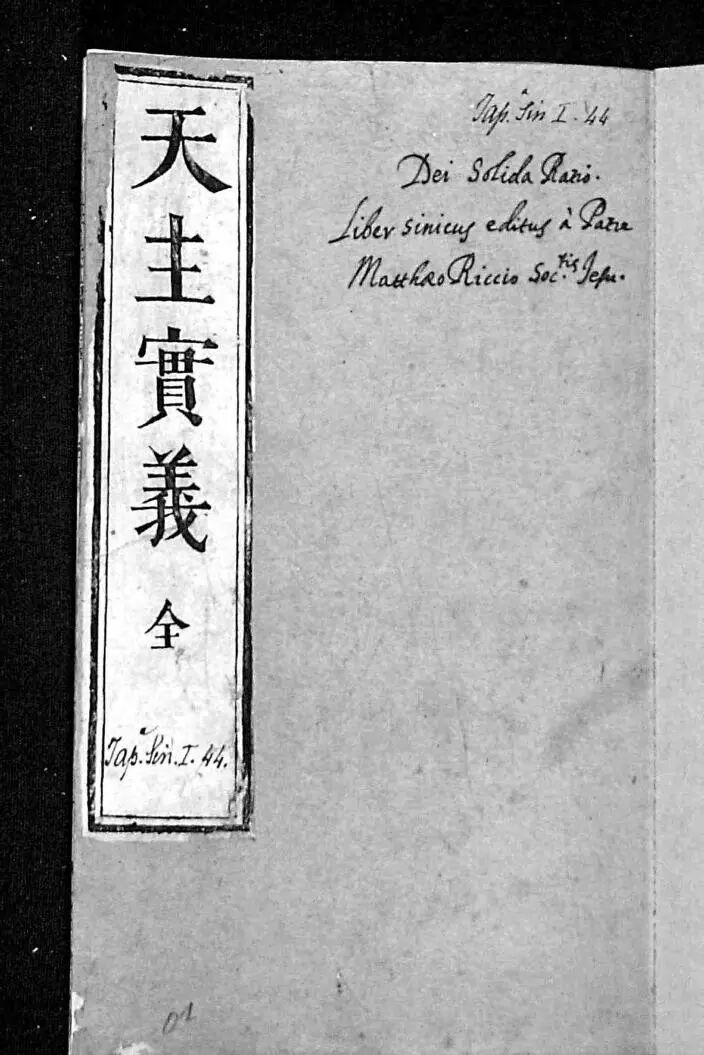 天主實義 全
Japᵃ. Sin. I. 44.
Japᵃ. Sin I. 44
Dei Solida Ratio.
Liber Sinicus editus à Patre
Matthæo Riccio Soc.tis Jesu.
01